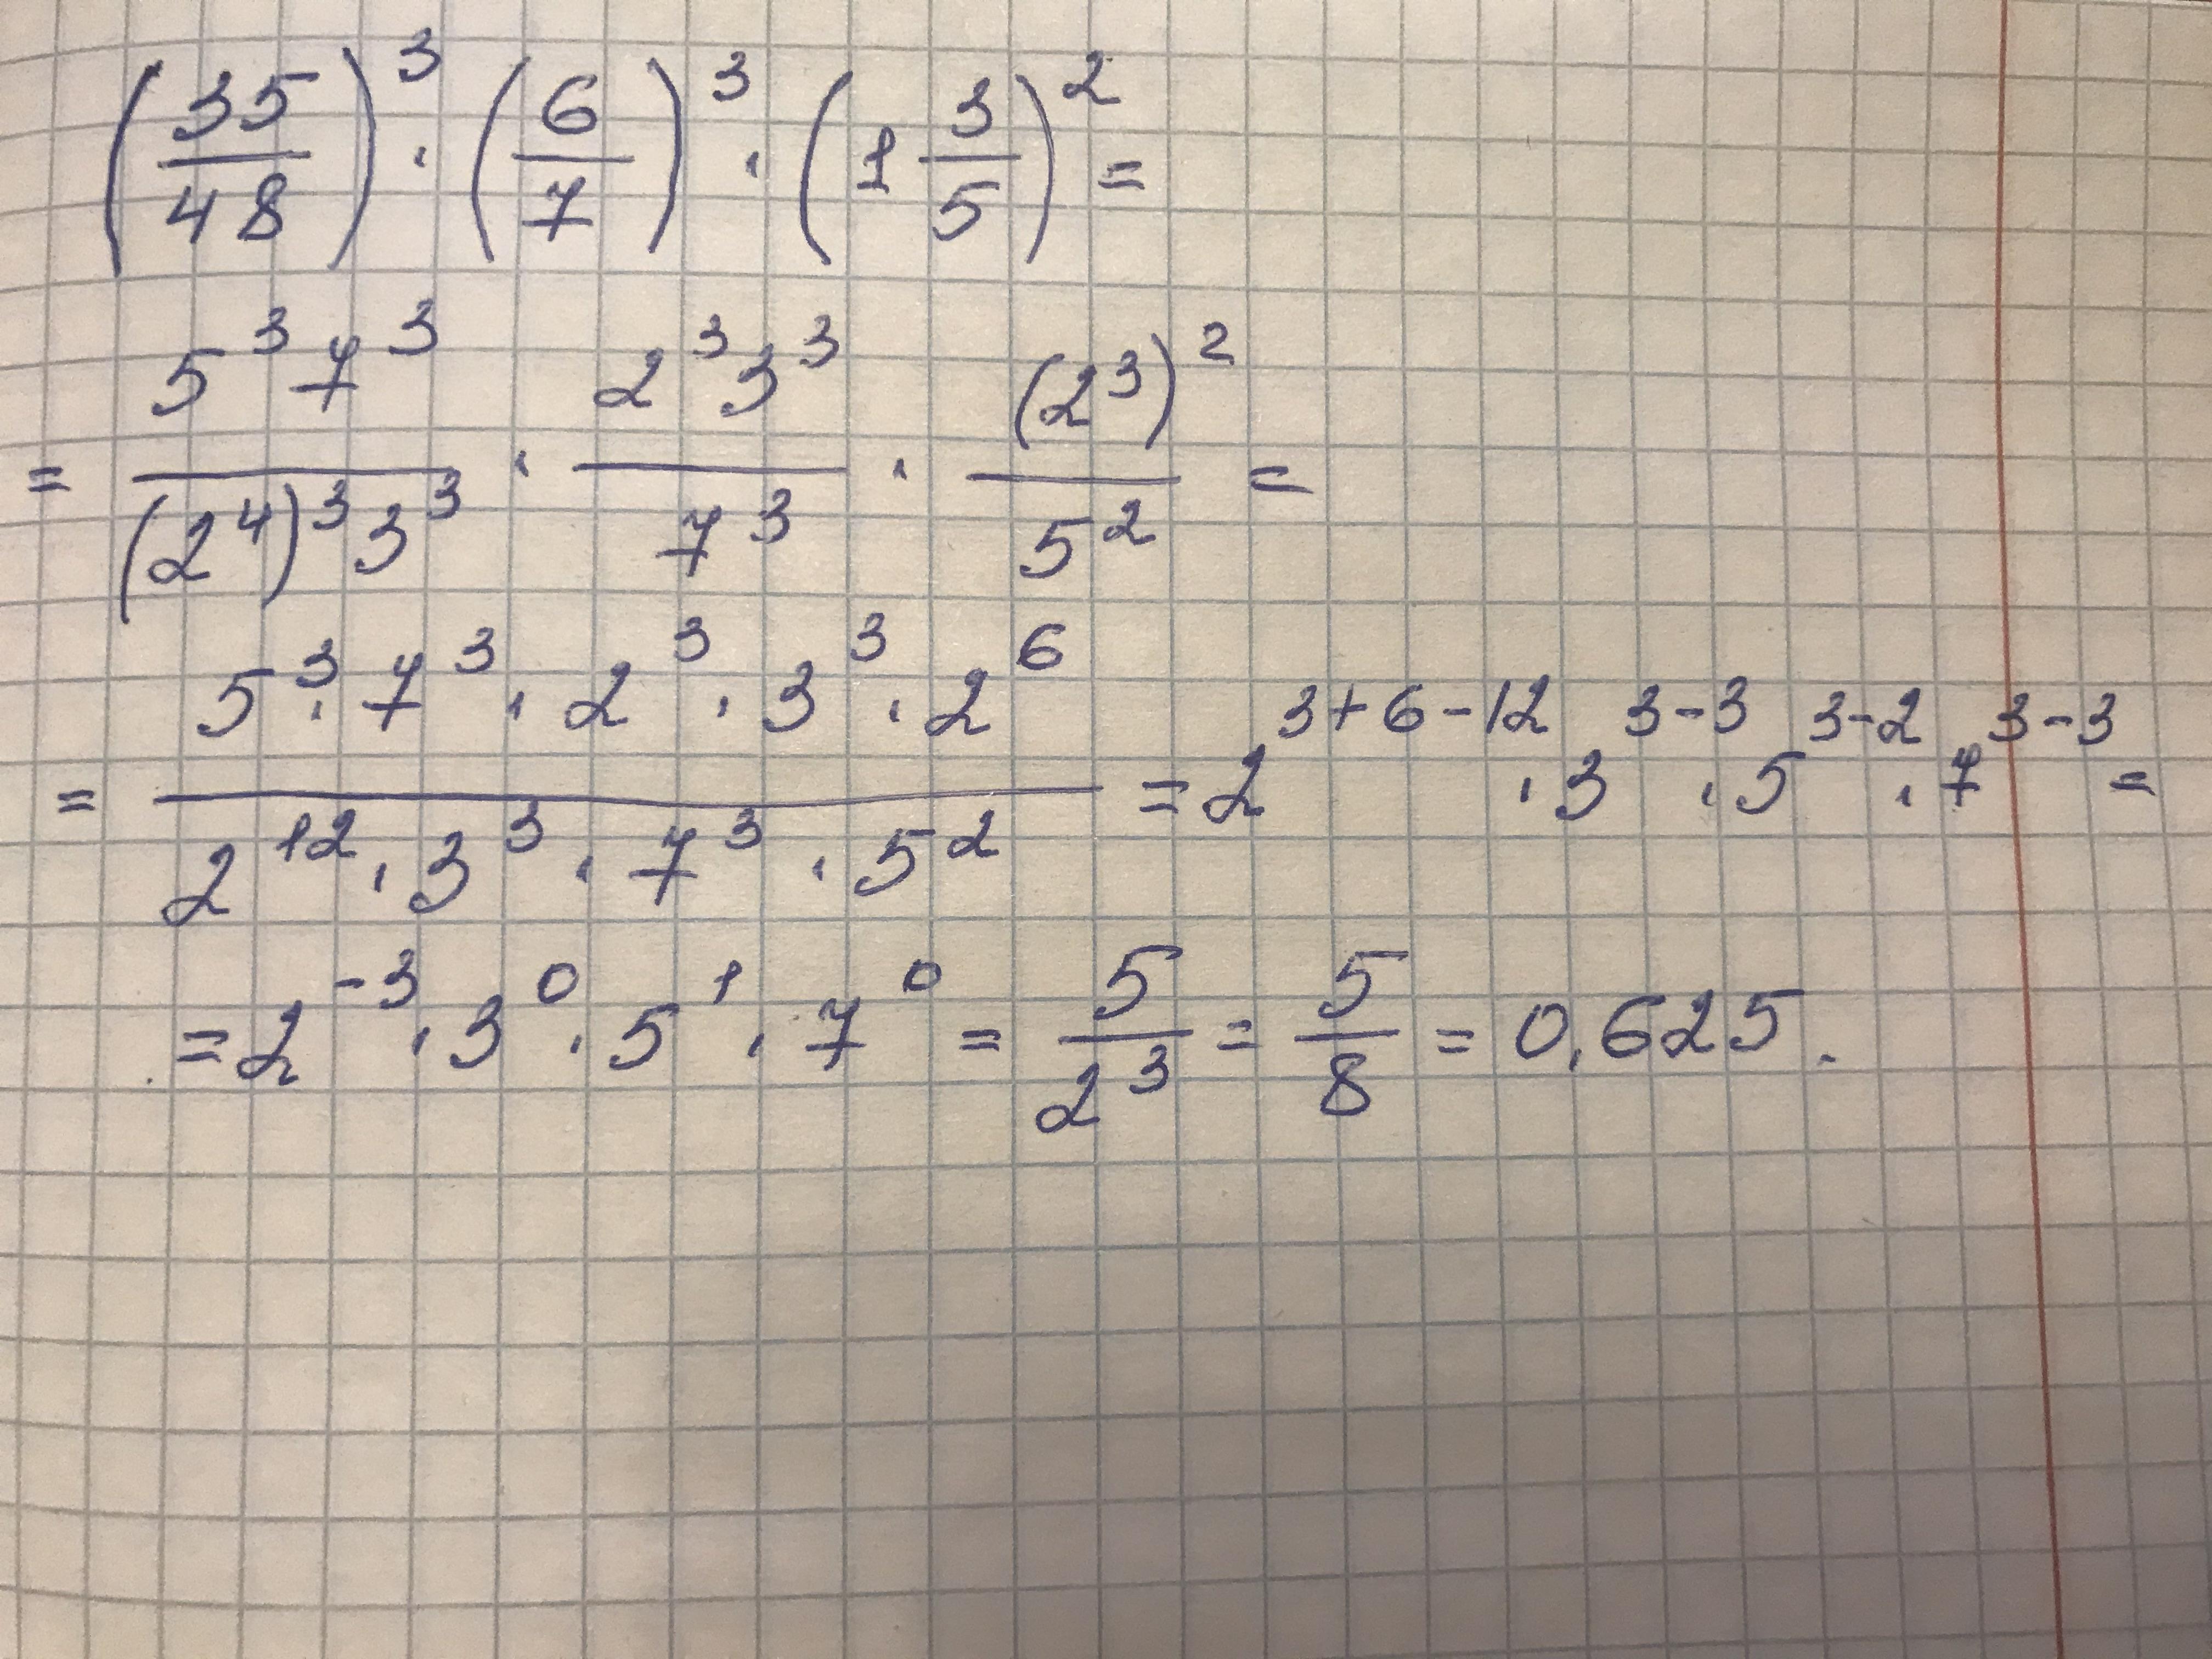 (35/48)³ · (6/7)³ · (1 3/5)² =
= 5³7³/((2⁴)³3³) · 2³3³/7³ · (2³)²/5² =
= (5³ · 7³ · 2³ · 3³ · 2⁶)/(2¹² · 3³ · 7³ · 5²) = 2³⁺⁶⁻¹² · 3³⁻³ · 5³⁻² · 7³⁻³ =
= 2⁻³ · 3⁰ · 5¹ · 7⁰ = 5/2³ = 5/8 = 0,625.